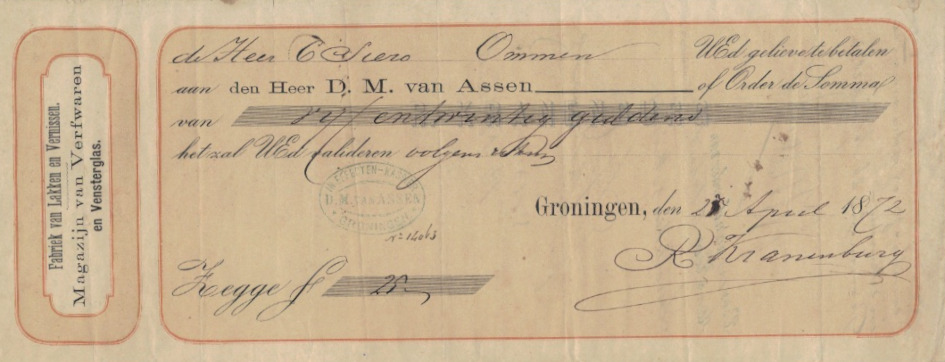 Fabriek van Lakken en Vernissen.
Magazijn van Verfwaren
en Vensterglas.
de Heer Ommen UEd gelieve te betalen
aan den Heer D. M. van Assen of Order de Somma
van vyf en twintig guldens
het zal UEd valideren volgens
D. M. VAN ASSEN
GRONINGEN
No 14063
Groningen, den April 1872
R Kranenburg
Zegge f 25